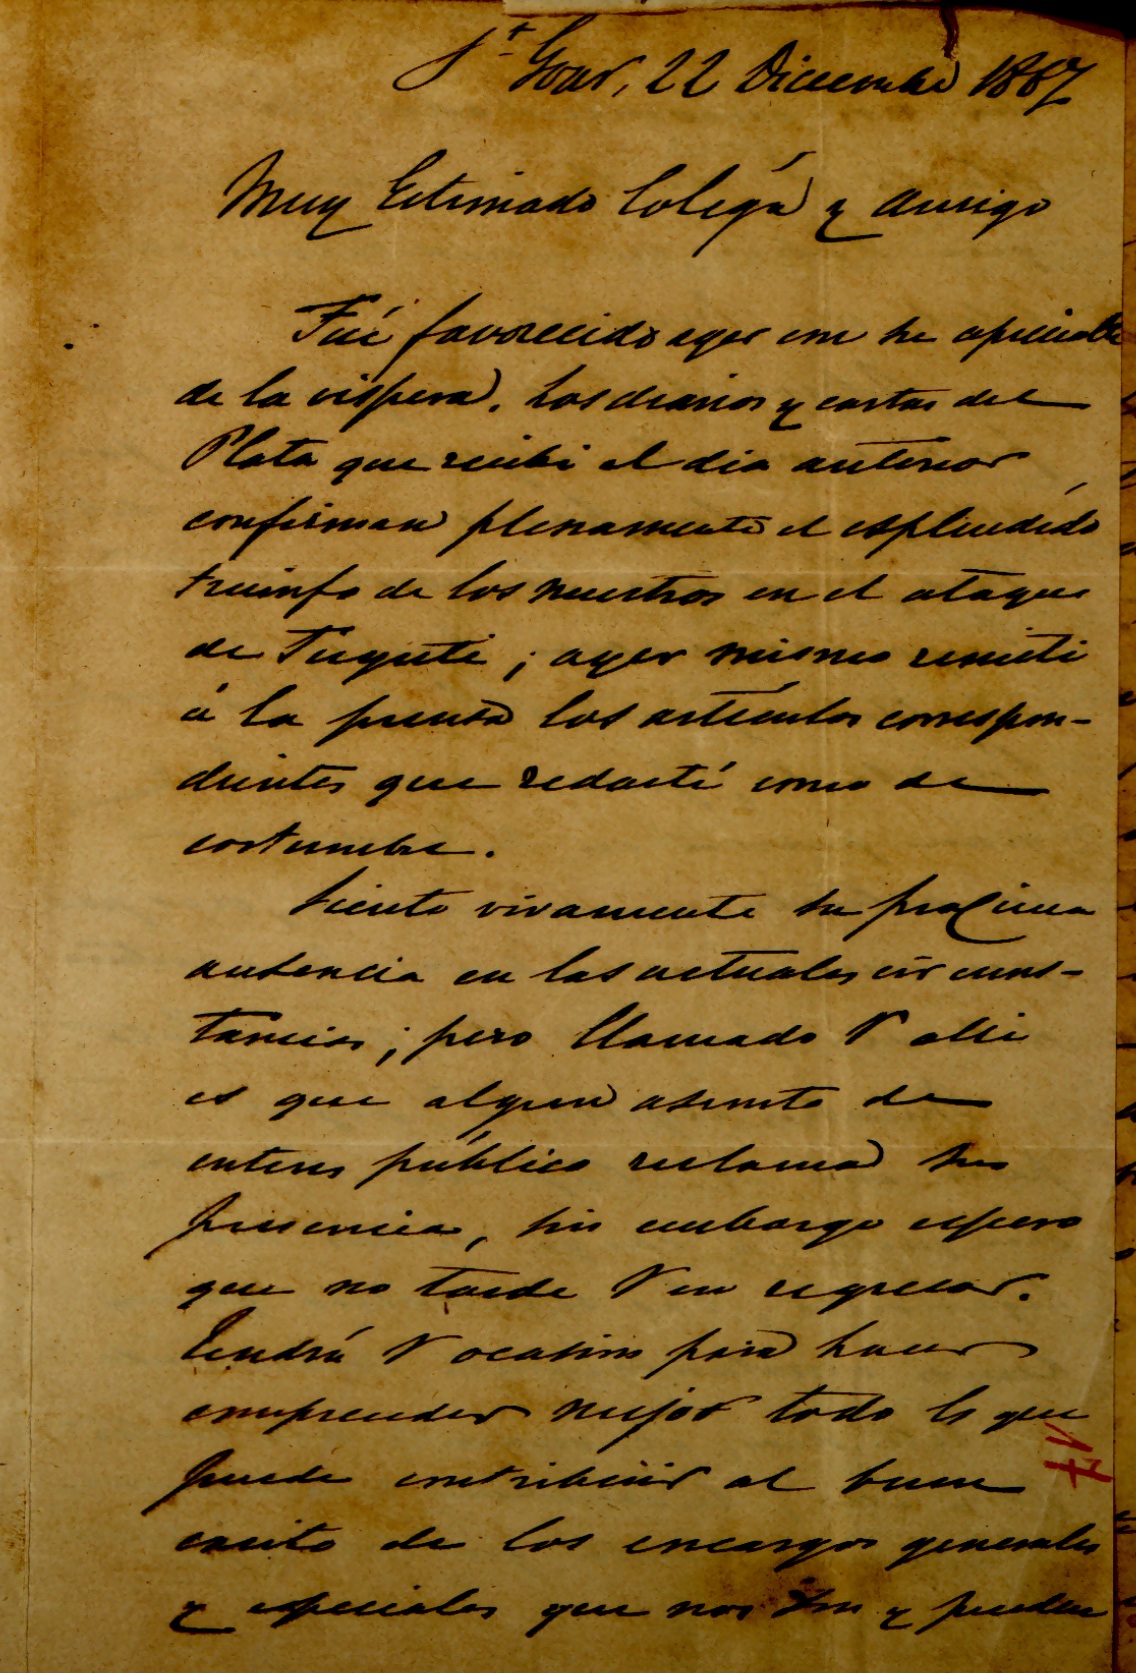 St Goar, 22 Diciembre 1867
Muy Estimado Coléga y amigo
Fuí favorecido ayer con su apreciable
de la vispera. Los diarios y cartas del
Plata que recibi el dia anterior
confirman plenamente el espléndido
triunfo de los nuestros en el ataque
de Tuyuti; ayer mismo remiti
á la prensa los artículos correspon-
dientes que redacté como de
costumbre.
Siento vivamente su proxima
ausencia en las actuales circuns-
tancias; pero llamado V alli
es que algun asunto de
interes público reclama su
presencia, sin embargo espero
que no tarde V en regresar.
Tendrá V ocasion para hacer
comprender mejor todo lo que
puede contribuir al buen
exito de los encargos generales
y especiales que nos son y pueden